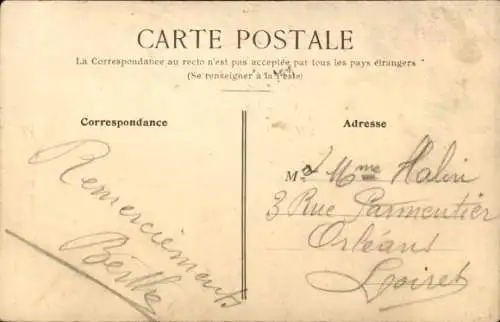 CARTE POSTALE
La Correspondance au recto n'est pas acceptée par tous les pays étrangers
(Se renseigner à la Poste)
Correspondance
Remerciements
Berthe
Adresse
M Mme Halin
3 Rue Parmentier
Orléans
Loiret